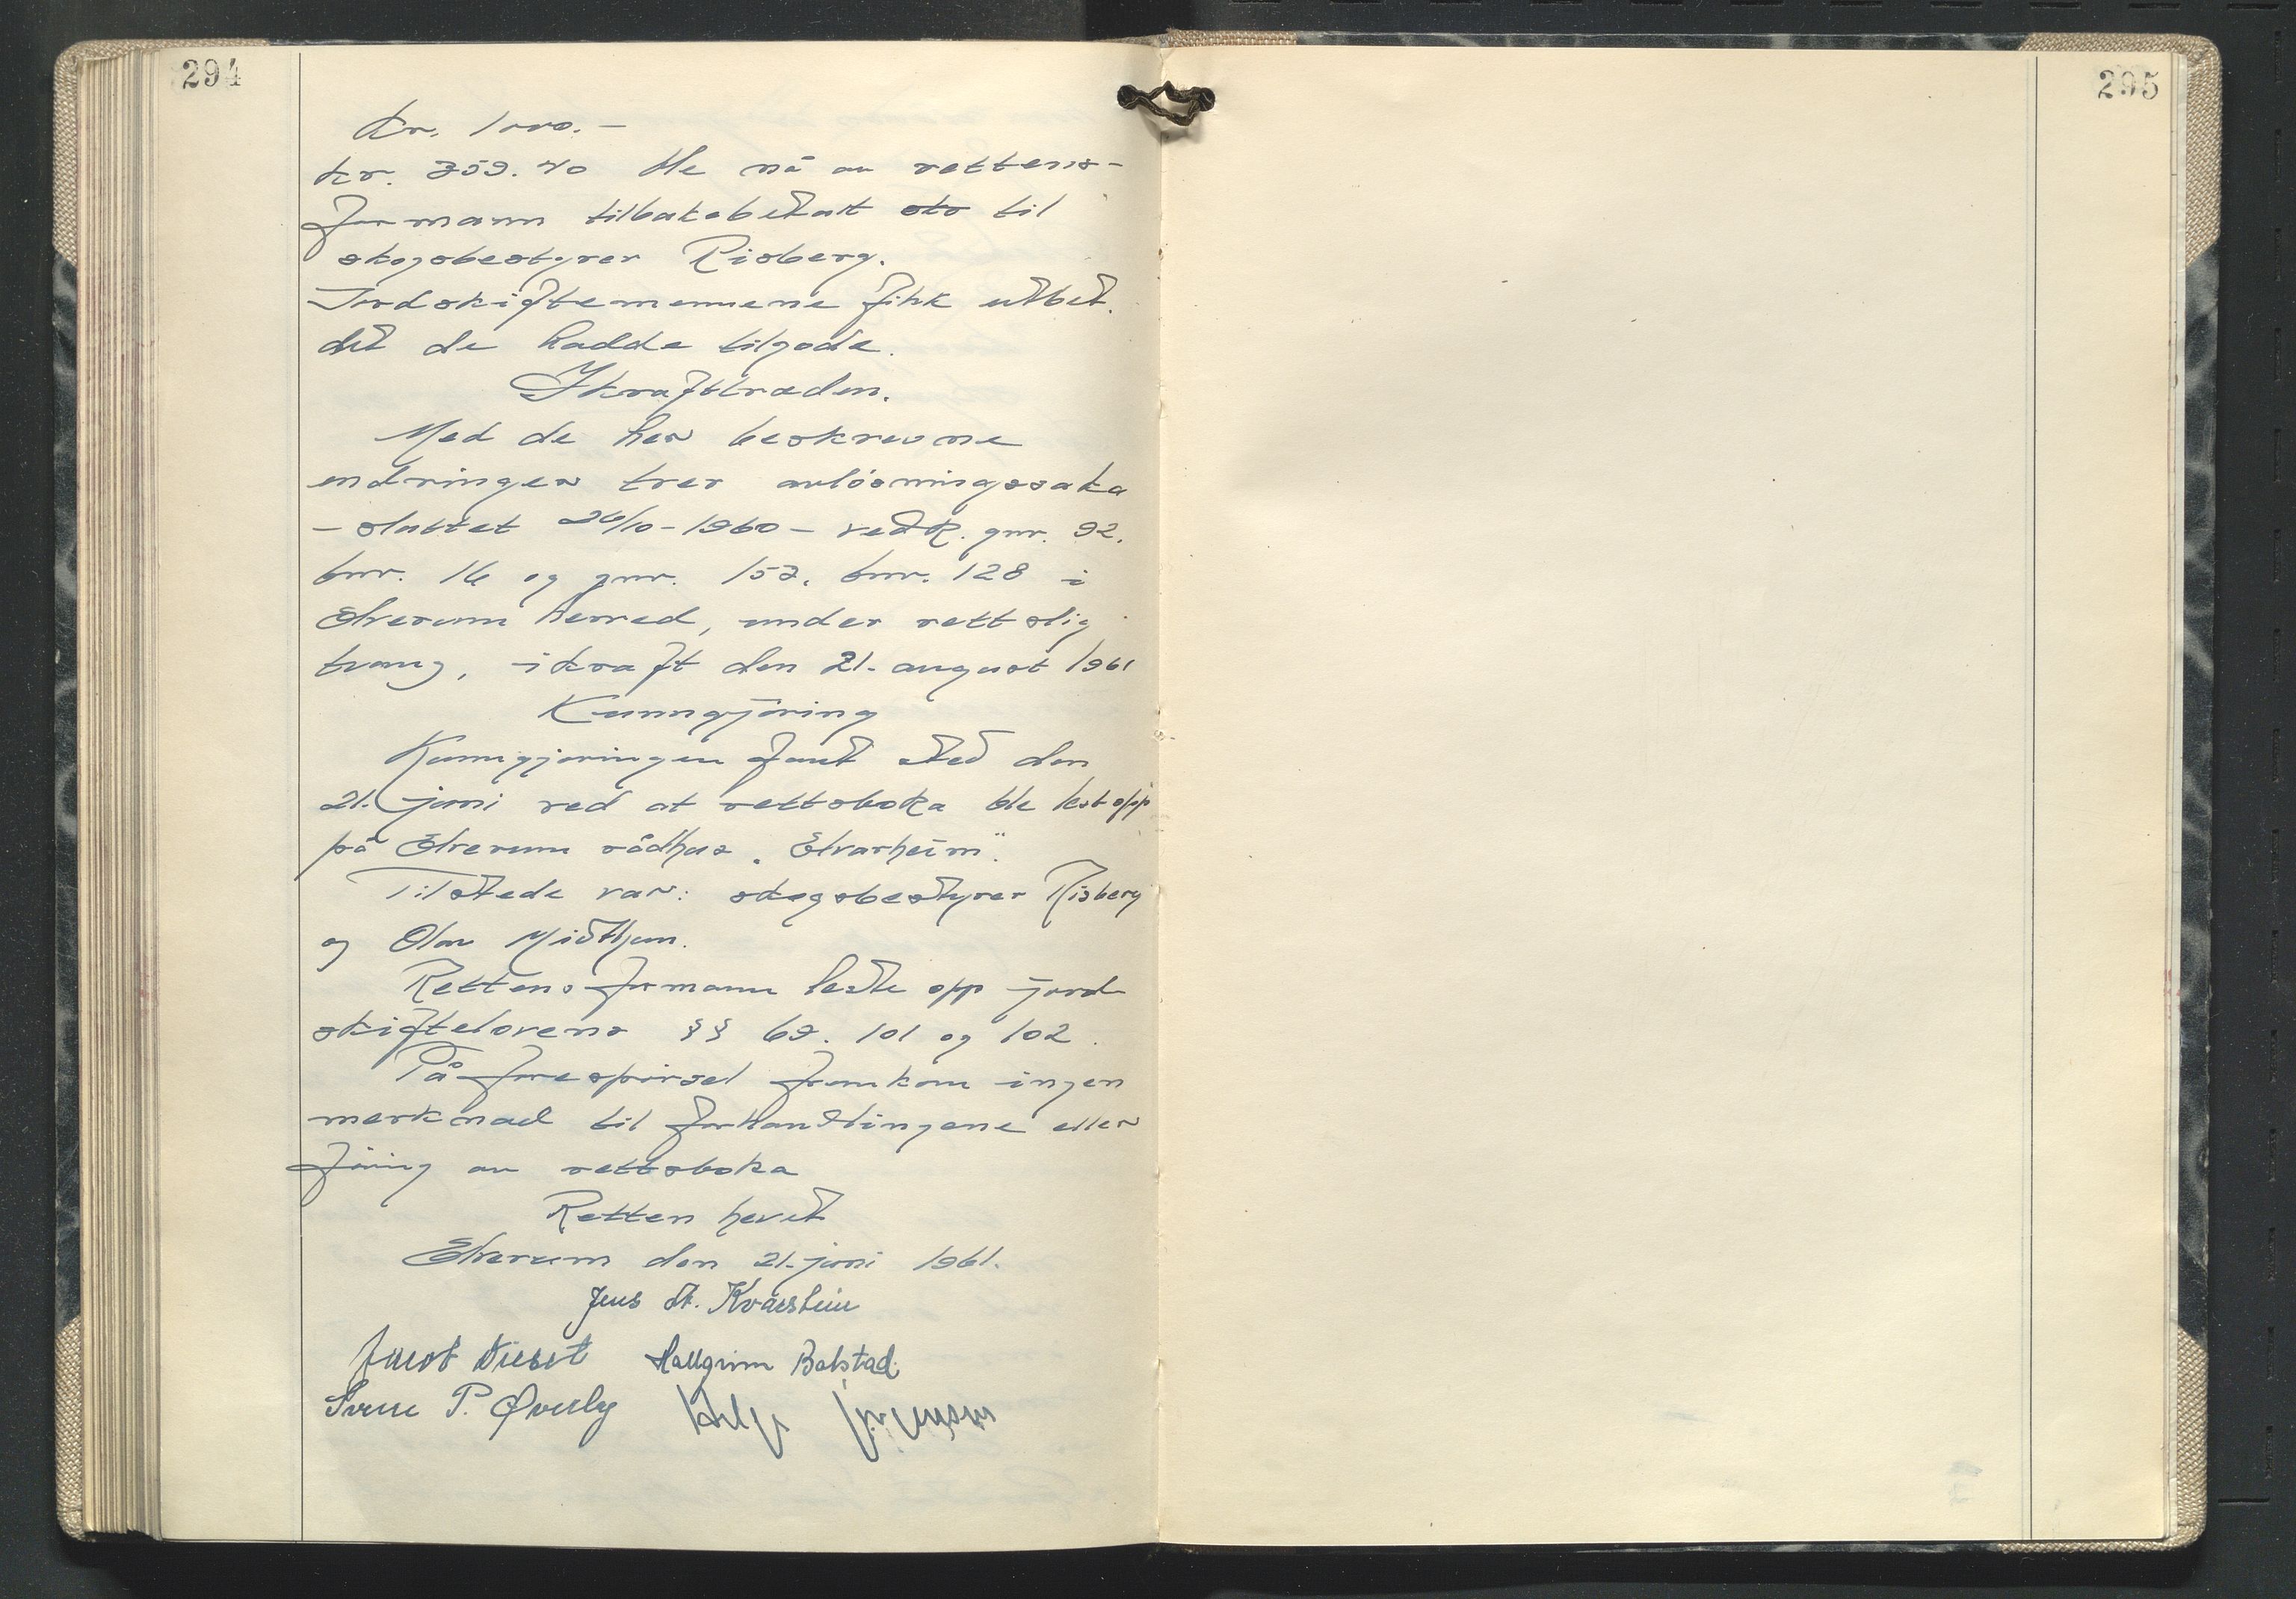 294
kr. 1000.-
kr. 359.40 ble nå av rettens-
formann tilbakebetalt til
skogsbestyrer Risberg.
Jordskiftemennene fikk utbet.
det de hadde tilgode.
Ikrafttræden.
Med de her beskrevne
endringer trer avløsningssaka
- sluttet 26/10-1960 - vedk. gnr. 92,
bnr. 16 og gnr. 152, bnr. 128 i
Elverum herred, under rettslig
tvang, i kraft den 21. august 1961
Kunngjøring
Kunngjøringen fant sted den
21. juni ved at rettsboka ble lest opp
på Elverum rådhus „Elvarheim".
Tilstede var: skogsbestyrer Risberg
og Olav Midthun.
Rettens formann leste opp jord
skiftelovens §§ 69, 101 og 102.
På forespørsel fremkom ingen
merknad til forhandlingene eller
føring av rettsboka
Retten hevet
Elverum den 21. juni 1961.
Jens St. Kværstein
Hallgrim Bakstad.
Sverre P. Øverby Helge Jørgensen
295